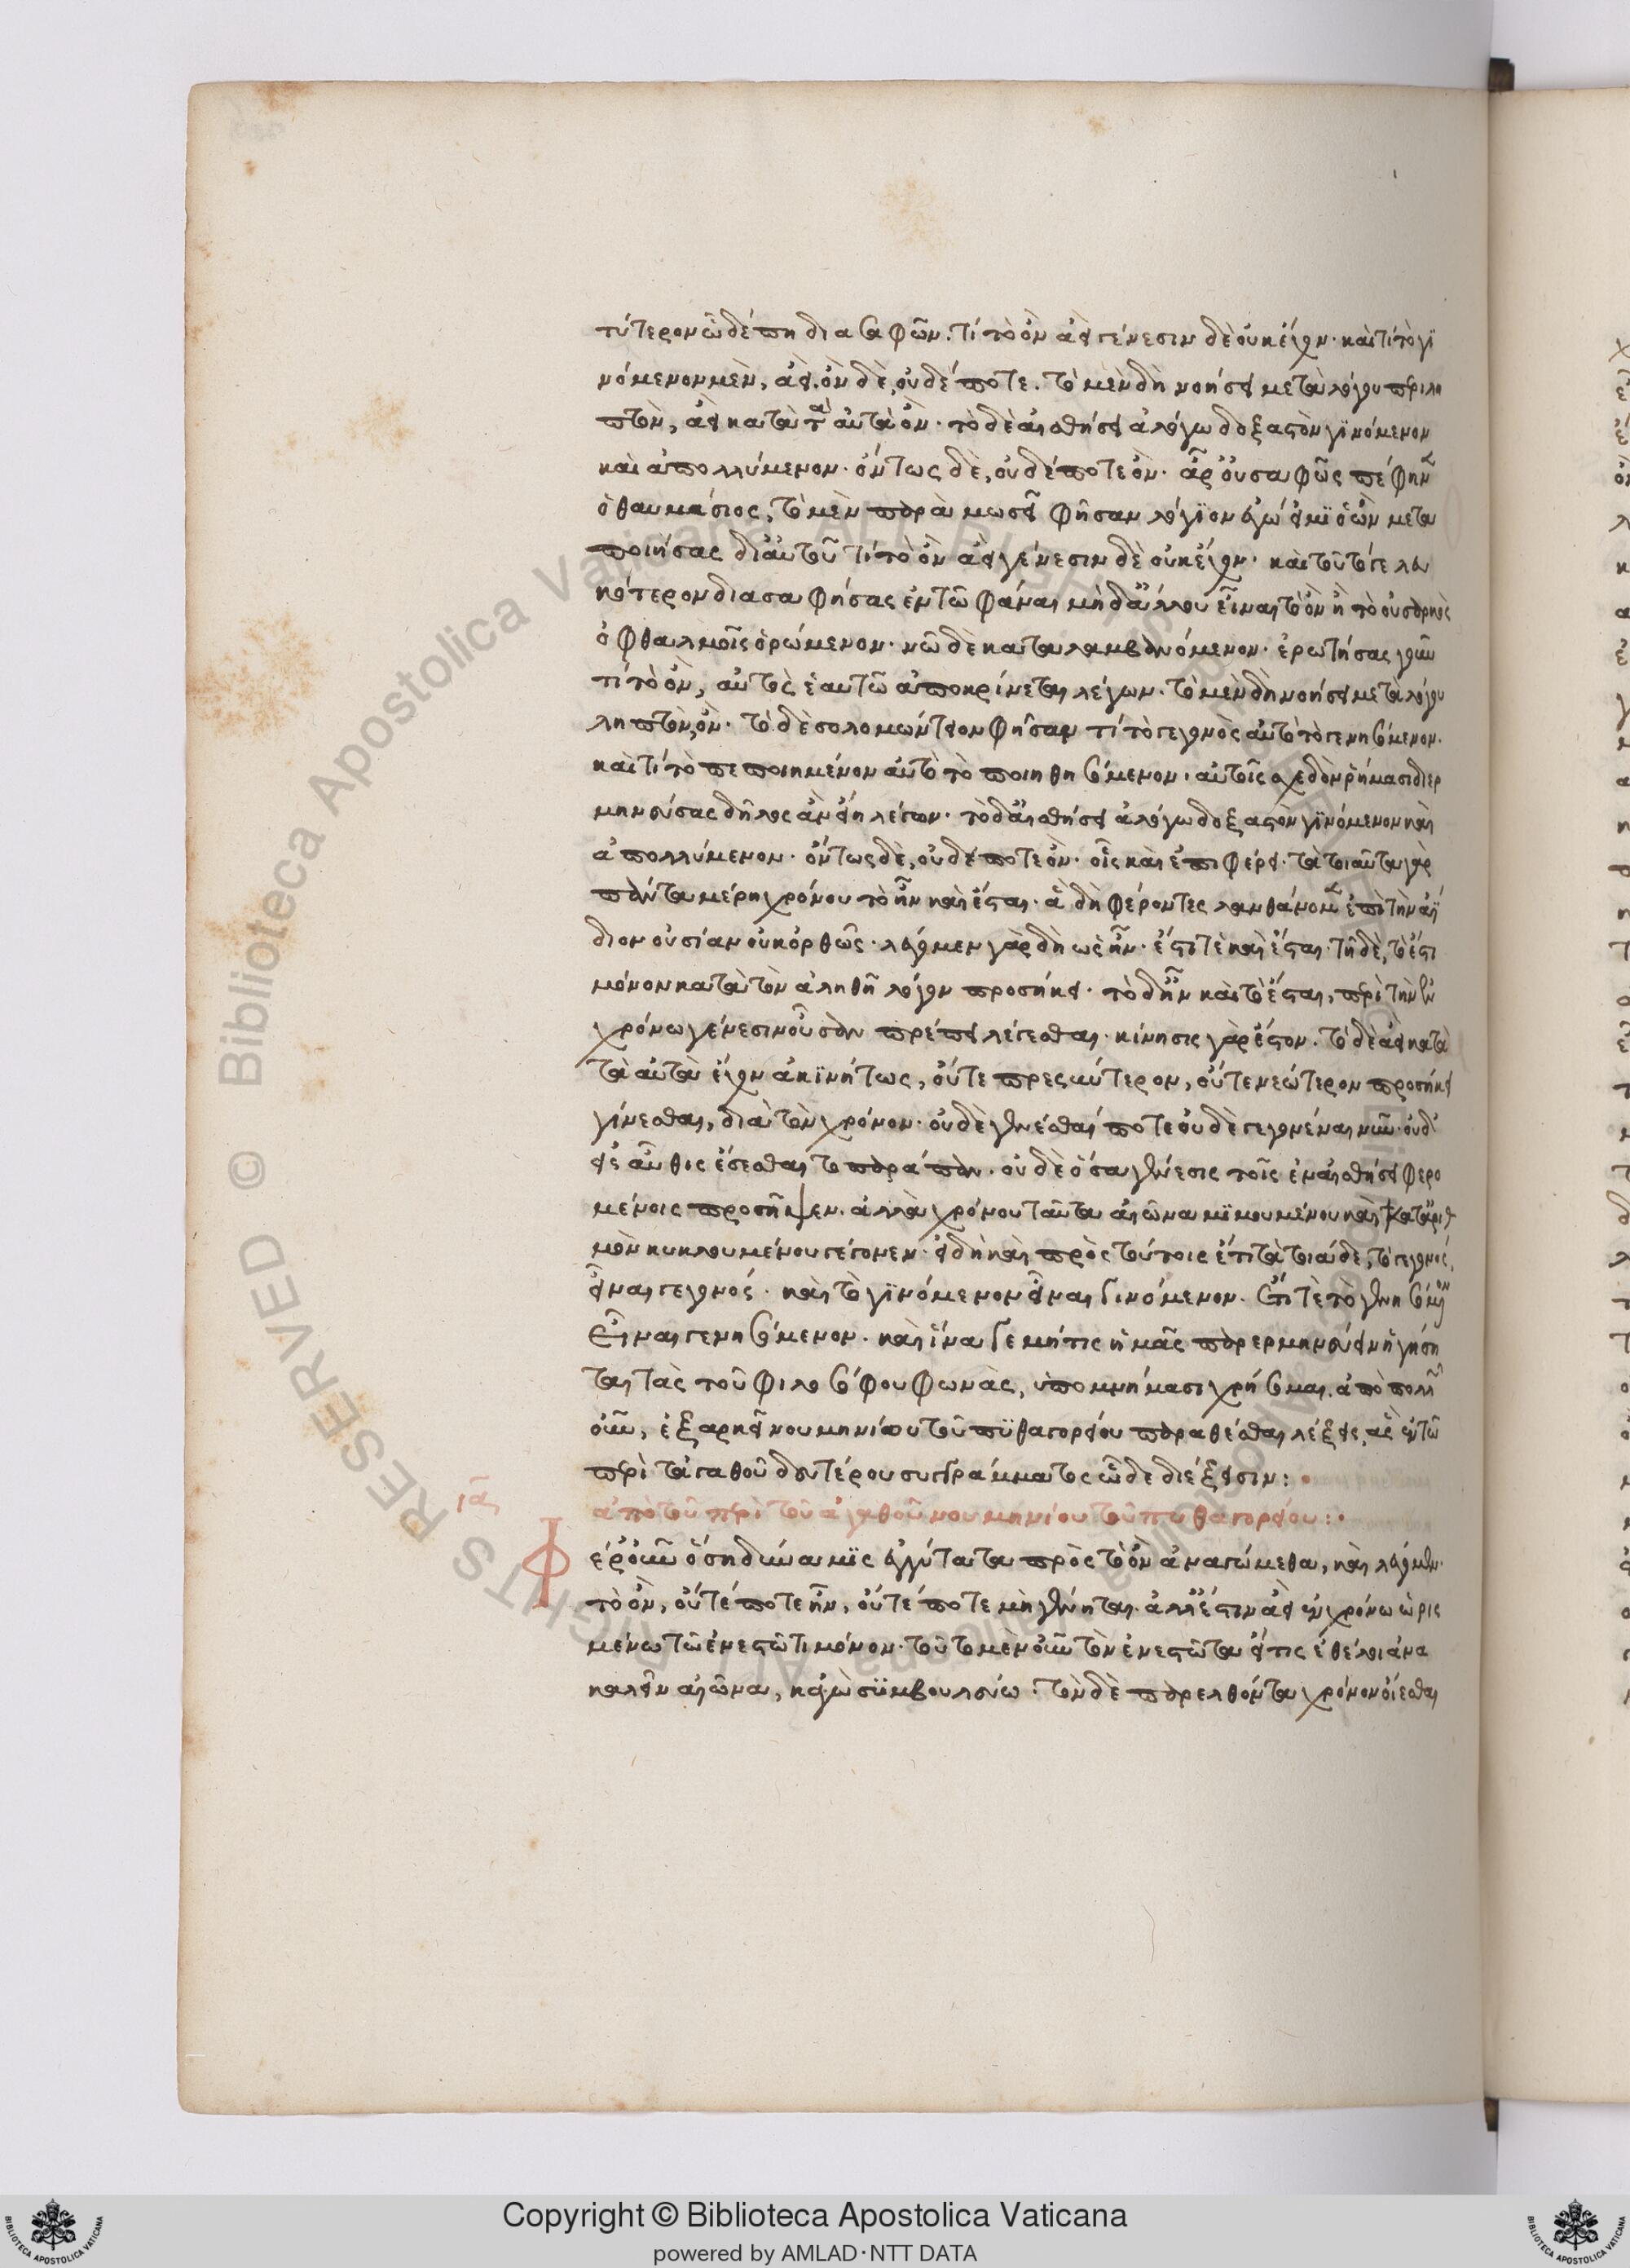 τύτερον ὧδέ πη διασαφῶν. τί τὸ ὂν ἀεὶ γένεσιν δὲ οὐκ ἔχον· καὶ τί τὸ γι
νόμενον μὲν, ἀεὶ. ὂν δὲ, οὐδέποτε. τὸ μὲν δὴ νοήσει μετὰ λόγου περιλη
πτὸν, ἀεὶ κατὰ τὰ αὐτὰ ὄν· τὸ δὲ αἰσθήσει ἀλόγω δοξαστὸν γϊνόμενον
καὶ ἀπολλύμενον· ὄντως δὲ, οὐδέποτε ὄν· ἆρ' οὐ σαφῶς πέφηνεν
ὁ θαυμάσιος, τὸ μὲν παρὰ μωσεῖ φῆσαν λόγϊον ἐγώ εἰμϊ ὁ ὢν μετα
ποιήσας δι' αὐτοῦ τί τὸ ὂν ἀεὶ γένεσιν δὲ οὐκ ἔχον· καὶ τοῦτό γε λευ
κότερον διασαφήσας ἐν τῶ φάναι μὴ δ' ἄλλου εἶναι τὸ ὂν ἢ τὸ οὐ σαρκὸς
ὀφθαλμοῖς ὁρώμενον· νῶ δὲ καταλαμβανόμενον· ἐρωτήσας γοῦν
τί τὸ ὂν, αὐτὸς ἑαυτῶ ἀποκρίνεται λέγων· τὸ μὲν δὴ νοήσει μετὰ λόγου
ληπτὸν, ὄν· τὸ δὲ σολομώντειον φῆσαν τί τὸ γεγονὸς αὐτὸ τὸ γενησόμενον·
καὶ τί τὸ πεποιημένον αὐτὸ τὸ ποιηθησόμενον· αὐτοῖς σχεδὸν ῥήμασι διερ
μηνεύσας δῆλος ἂν εἴη λέγων· τὸ δ' αἰσθήσει ἀλόγω δοξαστὸν γϊνόμενον καὶ
ἀπολλύμενον· ὄντως δὲ, οὐδέποτε ὄν· οἷς καὶ ἐπιφέρει· τὰ τοιαῦτα γὰρ
πάντα μέρη χρόνου τὸ ἦν καὶ ἔσται· ἃ δὴ φέροντες λανθάνομεν ἐπὶ τὴν ἀΐ
διον οὐσίαν οὐκ ὀρθῶς· λέγομεν γὰρ δὴ ὡς ἦν· ἔστι τὲ καὶ ἔσται· τῆ δὲ, τὸ ἔστι
μόνον κατὰ τὸν ἀληθῆ λόγον προσήκει· τὸ δ' ἦν καὶ τὸ ἔσται, περὶ τὴν ἐν
χρόνω γένεσιν οὖσαν πρέπει λέγεσθαι· κίνησις γάρ ἐστον. τὸ δὲ ἀεὶ κατὰ
τὰ αὐτὰ ἔχον ἀκϊνήτως, οὔτε πρεσβύτερον, οὔτε νεώτερον προσήκει
γίνεσθαι, διὰ τὸν χρόνον· οὐδὲ γενέσθαι ποτε οὐδὲ γεγονέναι νῦν· οὐδ'
εἰσαῦθις ἔσεσθαι τὸ παράπαν. οὐδὲ ὅσα γένεσις τοῖς ἐν αἰσθήσει φερο
μένοις προσῆψεν. ἀλλὰ χρόνου ταῦτα αἰῶνα μϊμουμένου καὶ κατ' ἀριθ
μὸν κυκλουμένου γέγονεν· εἴδη καὶ πρὸς τούτοις ἔτι τὰ τοιάδε, τὸ γεγονός,
εἶναι γεγονός· καὶ τὸ γϊνόμενον εἶναι γινόμενον. ἔτι τὲ τὸ γενησόμενον
εἶναι γενησόμενον. καὶ ἵνα γε μή τις ἡμᾶς παρερμηνεύειν ἡγήση
ται τὰς τοῦ φιλοσόφου φωνὰς, ὑπομνήμασι χρήσομαι. ἀπὸ πολλῶν
οὖν, ἐξαρκεῖ νουμηνίου τοῦ πϋθαγορείου παραθέσθαι λέξεις, ἃς ἐν τῶ
περὶ τἀγαθοῦ δευτέρου συγγράμματος ὧδε διέξεισιν:·
ια
ἀπὸ τοῦ περὶ τοῦ ἀγαθοῦ νουμηνίου τοῦ πυθαγορείου:·
Φέρ' οὖν ὅση δύναμϊς ἐγγύτατα πρὸς τὸ ὂν ἀναγώμεθα, καὶ λέγωμεν·
τὸ ὂν, οὔτέ ποτε ἦν, οὔτέ ποτε μὴ γένηται. ἀλλ' ἔστιν ἀεὶ ἐν χρόνω ὡρισ
μένω τῶ ἐνεστῶτι μόνον· τοῦτο μὲν οὖν τὸν ἐνεστῶτα εἴ τις ἐθέλοι ἀνα
καλεῖν αἰῶνα, κἀγὼ συμβουλεύω· τὸν δὲ παρελθόντα χρόνον οἴεσθαι
Copyright © Biblioteca Apostolica Vaticana
powered by AMLAD·NTT DATA